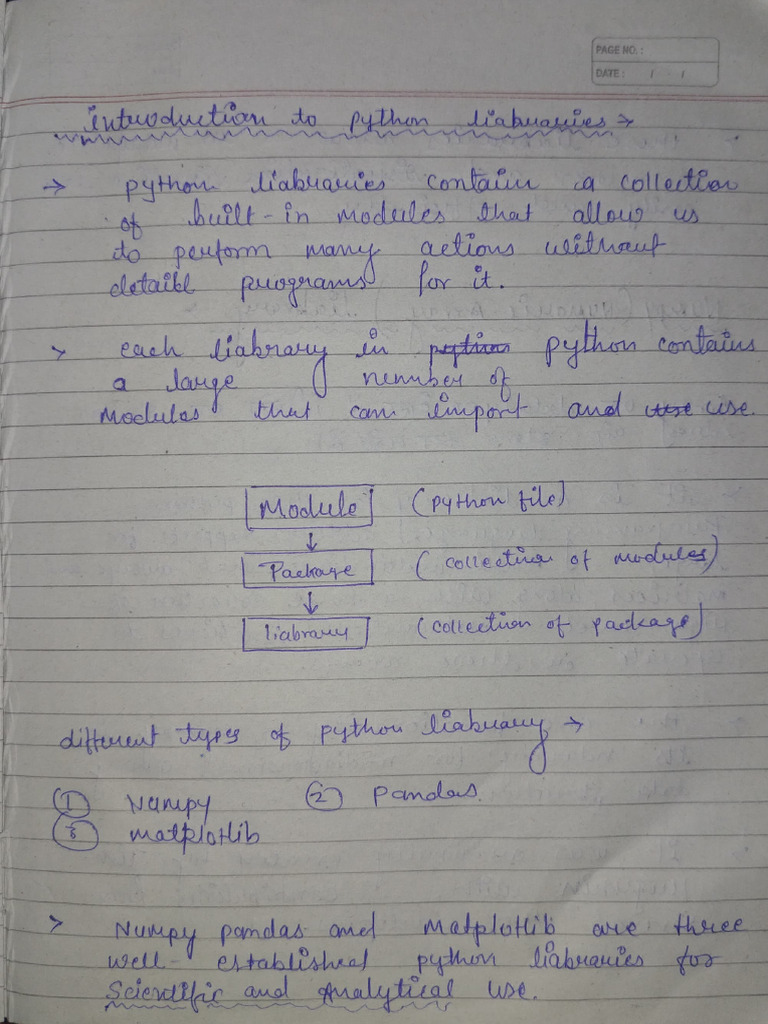 PAGE NO. :
DATE : / /
introduction to python liabraries →
→ python liabraries contain a collection
of built-in modules that allow us
to perform many actions without
detaill programs for it.
> each liabrary in python contains
a large nemnber of
modulas that can import and use.
Module (python file)
↓
Package (collection of modules)
↓
liabrary (collection of package)
different types of python liabruary →
① Numpy ② Pandas.
③ matplotlib
> Numpy pandas and Matplotlib are three
well-established python liabraries for
Scientific and Analytical use.